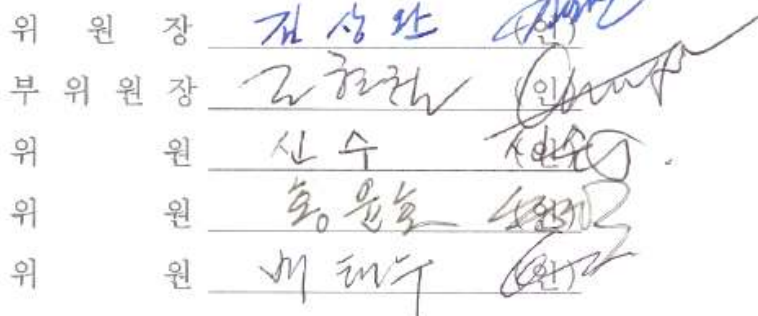 위 원 장 김 상 완 (인)
부 위 원 장 (인)
위 원 신 수 (인)
위 원 홍 윤 호 (인)
위 원 배 태 수 (인)